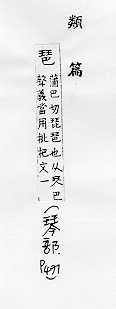 類篇
琶
蒲巴切琵琶也从珡巴
聲義當用枇杷文一
(琴部P497)